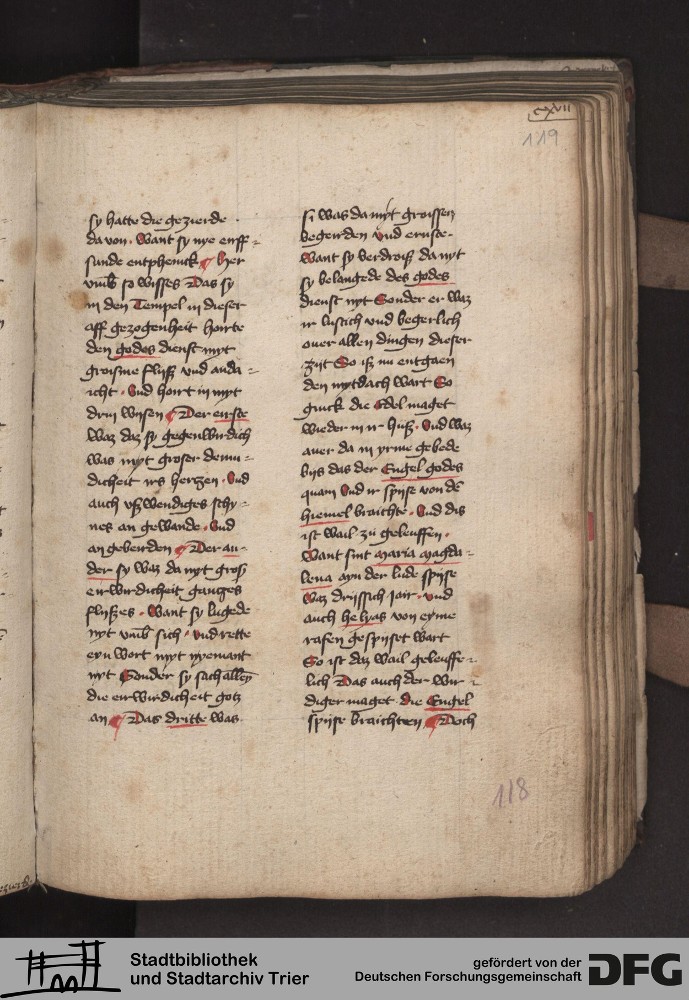 cxvii
119
sy hatte die gezierde ·
da von · Want sy nye entf=
sunde entphenck ¶ Her
vmb so wisses Das sy
in den Tempel in dieser
aff gezogenheit hoirte
den godes dienst myt
groisme flyß vnd anda=
icht · Vnd hoirt in myt
drin wijsen ¶ Der eirste
waz daz sy gegenwirdich
was myt groser demu=
dicheit irs hertzen · Vnd
auch vßwendiges schy=
nes an gewande · Vnd
an geberden ¶ Der an=
der sy waz da myt groß
eirwirdicheit gantzes
flyßes · Want sy lugede
nyt vmb sich · vnd rette
eyn wort myt nyemant
nyt Sonder sy sach alleyn
die eirwirdicheit gotz
an ¶ Das dritte was
si was da myt groissen
begerden vnd ernste ·
Want sy verdroiß da nyt
sy belangede des godes
dienst nyt Sonder er waz
ir lustich vnd begerlich
ouer allen dingen dieser
zijt So iß nu entgaen
den mytdach wart So
ginck die Edel maget
wieder in ir huß · Vnd waz
auer da in yrme gebede
bijs das der Engel godes
quam Vnd ir spijse von dē
hiemel braichte · Vnd dis
ist wail zu geleuffen ·
Want sint maria magda=
lena ayn der lude spijse
waz drijssich jair · vnd
auch helyas von eyme
rafen gespijset wart
So ist daz wail geleuffe=
lich Das auch der wir=
diger maget die Engel
spijse braichten ¶ Doch
118
Stadtbibliothek
und Stadtarchiv Trier
gefördert von der
Deutschen Forschungsgemeinschaft
DFG